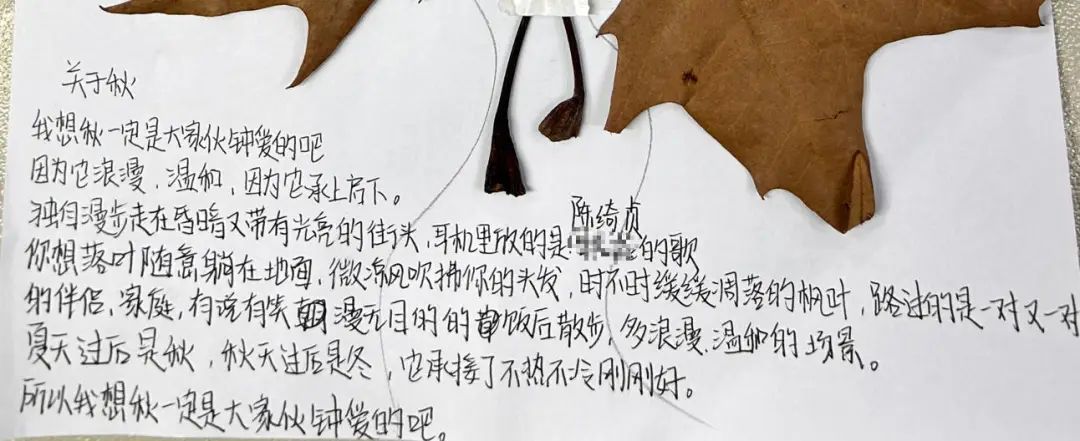 关于秋
我想秋一定是大家伙钟爱的吧
因为它浪漫、温和、因为它承上启下。
独自漫步走在昏暗又带有光亮的街头,耳机里放的是陈绮贞的歌
你想落叶随意躺在地面,微凉风吹拂你的头发,时不时缓缓凋落的枫叶,路过的是一对又一对
的伴侣、家庭,有说有笑漫无目的的饭后散步,多浪漫、温和的场景。
夏天过后是秋,秋天过后是冬,它承接了不热不冷刚刚好。
所以我想秋一定是大家伙钟爱的吧。